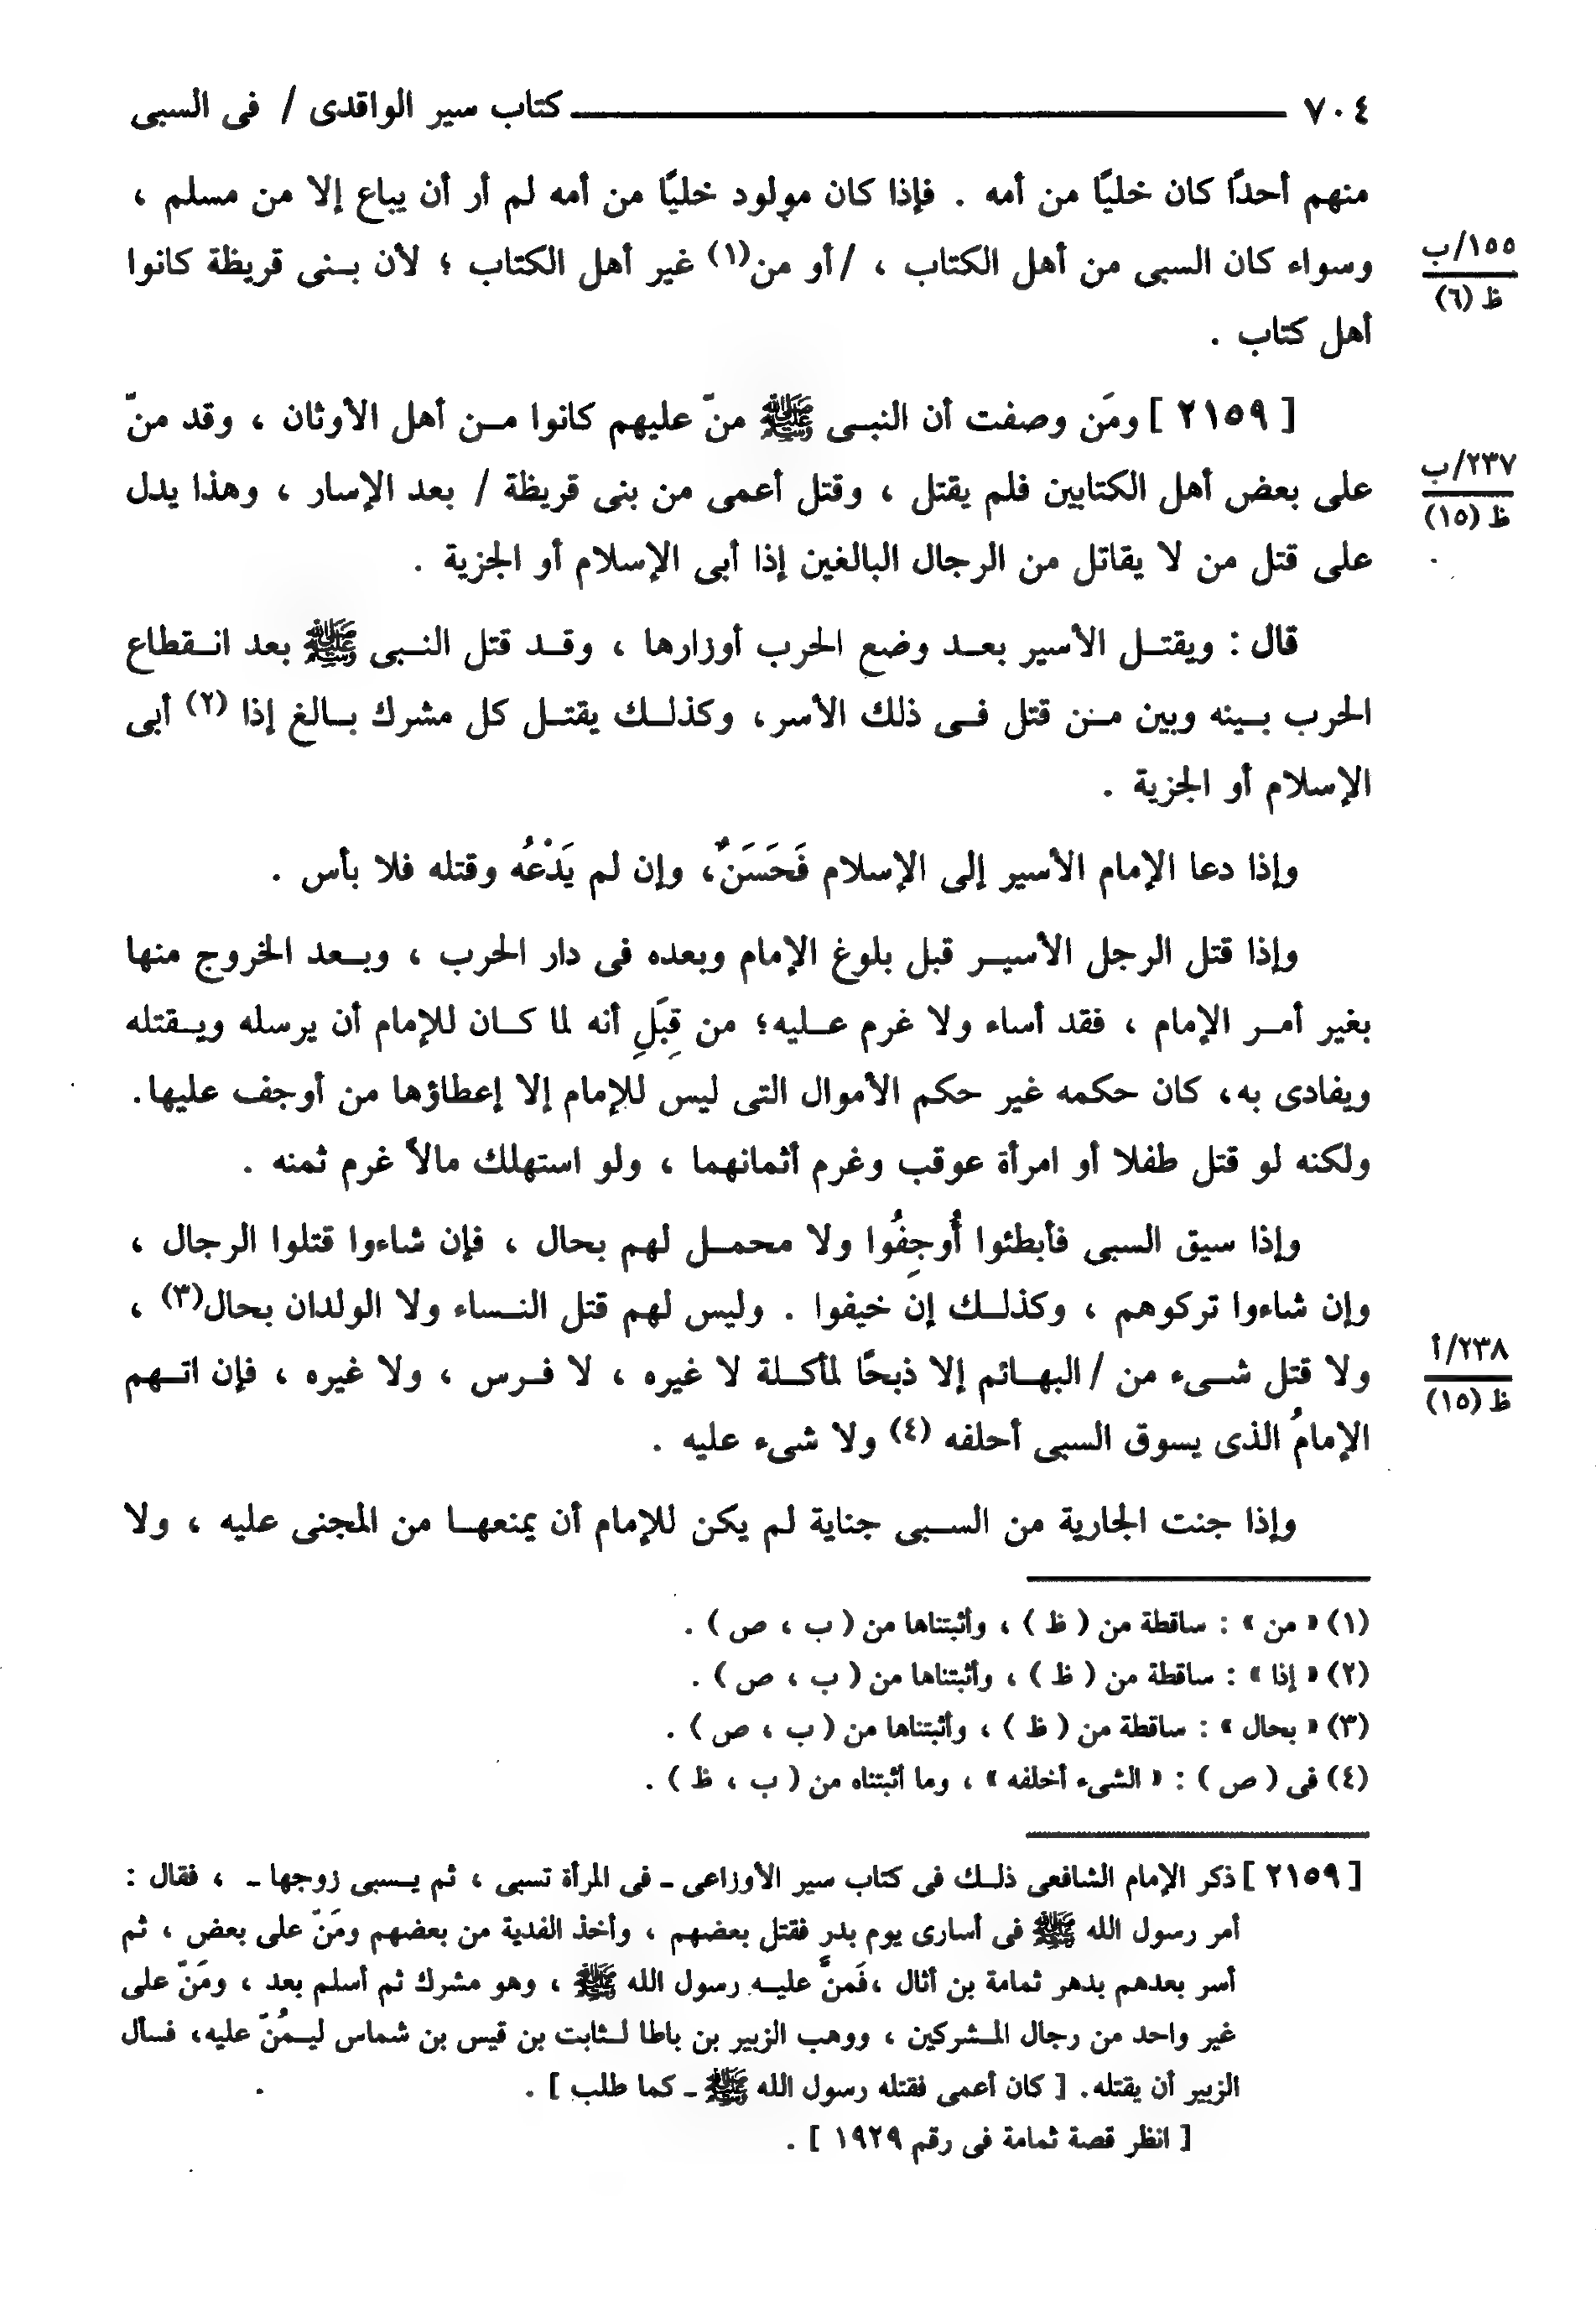 ٧٠٤ ـــــــ كتاب سير الواقدى / فى السبى
منهم أحدًا كان خليًا من أمه . فإذا كان مولود خليًا من أمه لم أر أن يباع إلا من مسلم ،
وسواء كان السبى من أهل الكتاب ، /أو من(١) غير أهل الكتاب ؛ لأن بنى قريظة كانوا
١٥٥/ب
ظ (٦)
أهل كتاب .
[ ٢١٥٩ ] ومَن وصفت أن النبى ﷺ منّ عليهم كانوا من أهل الأوثان ، وقد منّ
على بعض أهل الكتابين فلم يقتل ، وقتل أعمى من بنى قريظة / بعد الإسار ، وهذا يدل
٢٣٧/ب
ظ (١٥)
على قتل من لا يقاتل من الرجال البالغين إذا أبى الإسلام أو الجزية .
قال : ويقتل الأسير بعد وضع الحرب أوزارها ، وقد قتل النبى ﷺ بعد انقطاع
الحرب بينه وبين من قتل فى ذلك الأسر، وكذلك يقتل كل مشرك بالغ إذا (٢) أبى
الإسلام أو الجزية .
وإذا دعا الإمام الأسير إلى الإسلام فَحَسَنٌ، وإن لم يَدْعُه وقتله فلا بأس .
وإذا قتل الرجل الأسير قبل بلوغ الإمام وبعده فى دار الحرب ، وبعد الخروج منها
بغير أمر الإمام ، فقد أساء ولا غرم عليه؛ من قِبَلِ أنه لما كان للإمام أن يرسله ويقتله
ويفادى به، كان حكمه غير حكم الأموال التى ليس للإمام إلا إعطاؤها من أوجف عليها.
ولكنه لو قتل طفلا أو امرأة عوقب وغرم أثمانهما ، ولو استهلك مالاً غرم ثمنه .
وإذا سيق السبى فأبطئوا أُوجِفُوا ولا محمل لهم بحال ، فإن شاءوا قتلوا الرجال ،
وإن شاءوا تركوهم ، وكذلك إن خيفوا . وليس لهم قتل النساء ولا الولدان بحال(٣) ،
ولا قتل شىء من /البهائم إلا ذبحًا لمأكلة لا غيره ، لا فرس ، ولا غيره ، فإن اتهم
٢٣٨/أ
ظ (١٥)
الإمامُ الذى يسوق السبى أحلفه (٤) ولا شىء عليه .
وإذا جنت الجارية من السبى جناية لم يكن للإمام أن يمنعها من المجنى عليه ، ولا
(١) « من » : ساقطة من ( ظ ) ، وأثبتناها من ( ب ، ص ) .
(٢) « إذا » : ساقطة من ( ظ ) ، وأثبتناها من ( ب ، ص ) .
(٣) « بحال » : ساقطة من ( ظ ) ، وأثبتناها من ( ب ، ص ) .
(٤) فى ( ص ) : « الشىء أخلفه » ، وما أثبتناه من ( ب ، ظ ) .
[ ٢١٥٩ ] ذكر الإمام الشافعى ذلك فى كتاب سير الأوزاعى ـ فى المرأة تسبى ، ثم يسبى زوجها ـ ، فقال :
أمر رسول الله ﷺ فى أسارى يوم بدر فقتل بعضهم ، وأخذ الفدية من بعضهم ومَنّ على بعض ، ثم
أسر بعدهم بدهر ثمامة بن أثال ،فَمنَّ عليه رسول الله ﷺ ، وهو مشرك ثم أسلم بعد ، ومَنّ على
غير واحد من رجال المشركين ، ووهب الزبير بن باطا لثابت بن قيس بن شماس ليمُنّ عليه، فسأل
الزبير أن يقتله. [ كان أعمى فقتله رسول الله ﷺ ـ كما طلب ] .
[ انظر قصة ثمامة فى رقم ١٩٢٩ ] .